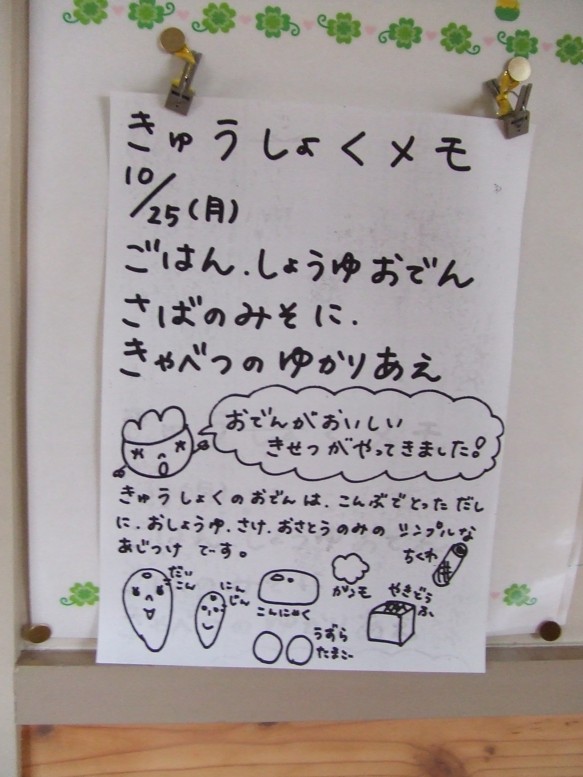 きゅうしょくメモ
10/25(月)
ごはん.しょうゆおでん
さばのみそに.
きゃべつのゆかりあえ
おでんがおいしい
きせつがやってきました!
きゅうしょくのおでんは.こんぶでとっただし
に.おしょうゆ.さけ.おさとうのみのシンプルな
あじつけでーす。
ちくわ
だいこん
にんじん
こんにゃく
がんモ
やきどうふ
うずら
たまごー